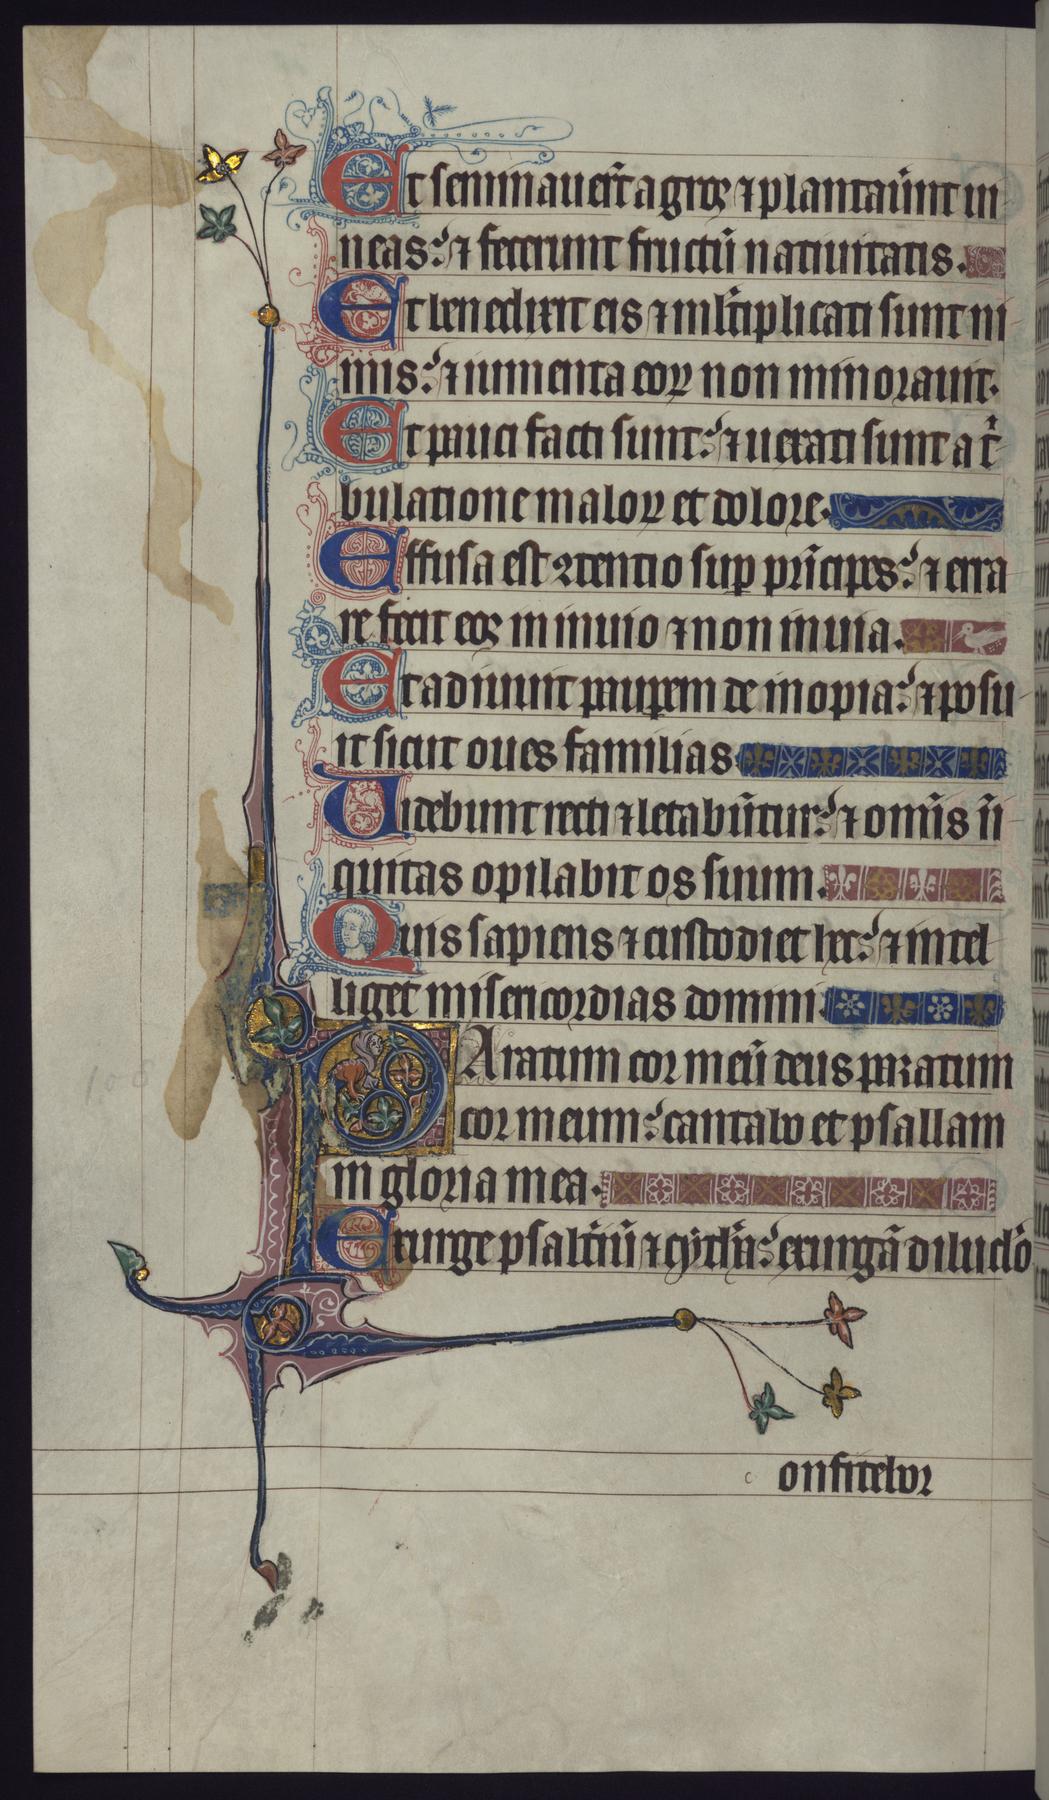 Et seminauer̄t agros ⁊ plantaūnt ui
neas: ⁊ fecerunt fructū natiuitatis.
Et benedixit eis ⁊ ml̄tiplicati sunt ni
mis: ⁊ iumenta eoꝝ non minorauit.
Et pauci facti sunt: ⁊ uexati sunt a t̄
bulatione maloꝝ et dolore.
Effusa est ꝯtentio suꝑ prīcipes: ⁊ erra
re fecit eos in inuio ⁊ non in uia.
Et adiuuit pauꝑem de inopia: ⁊ posu
it sicut oues familias
Uidebunt recti ⁊ letabūtur: ⁊ om̄is īi
quitas opilabit os suum.
Quis sapiens ⁊ custodiet hec: ⁊ intel
liget misericordias domini.
PAratum cor meū deus paratum
cor meum: cantabo et psallam
in gloria mea.
Exurge psalt̄iū ⁊ cythār̄a: exurgā diluclo̅
c onfitebor